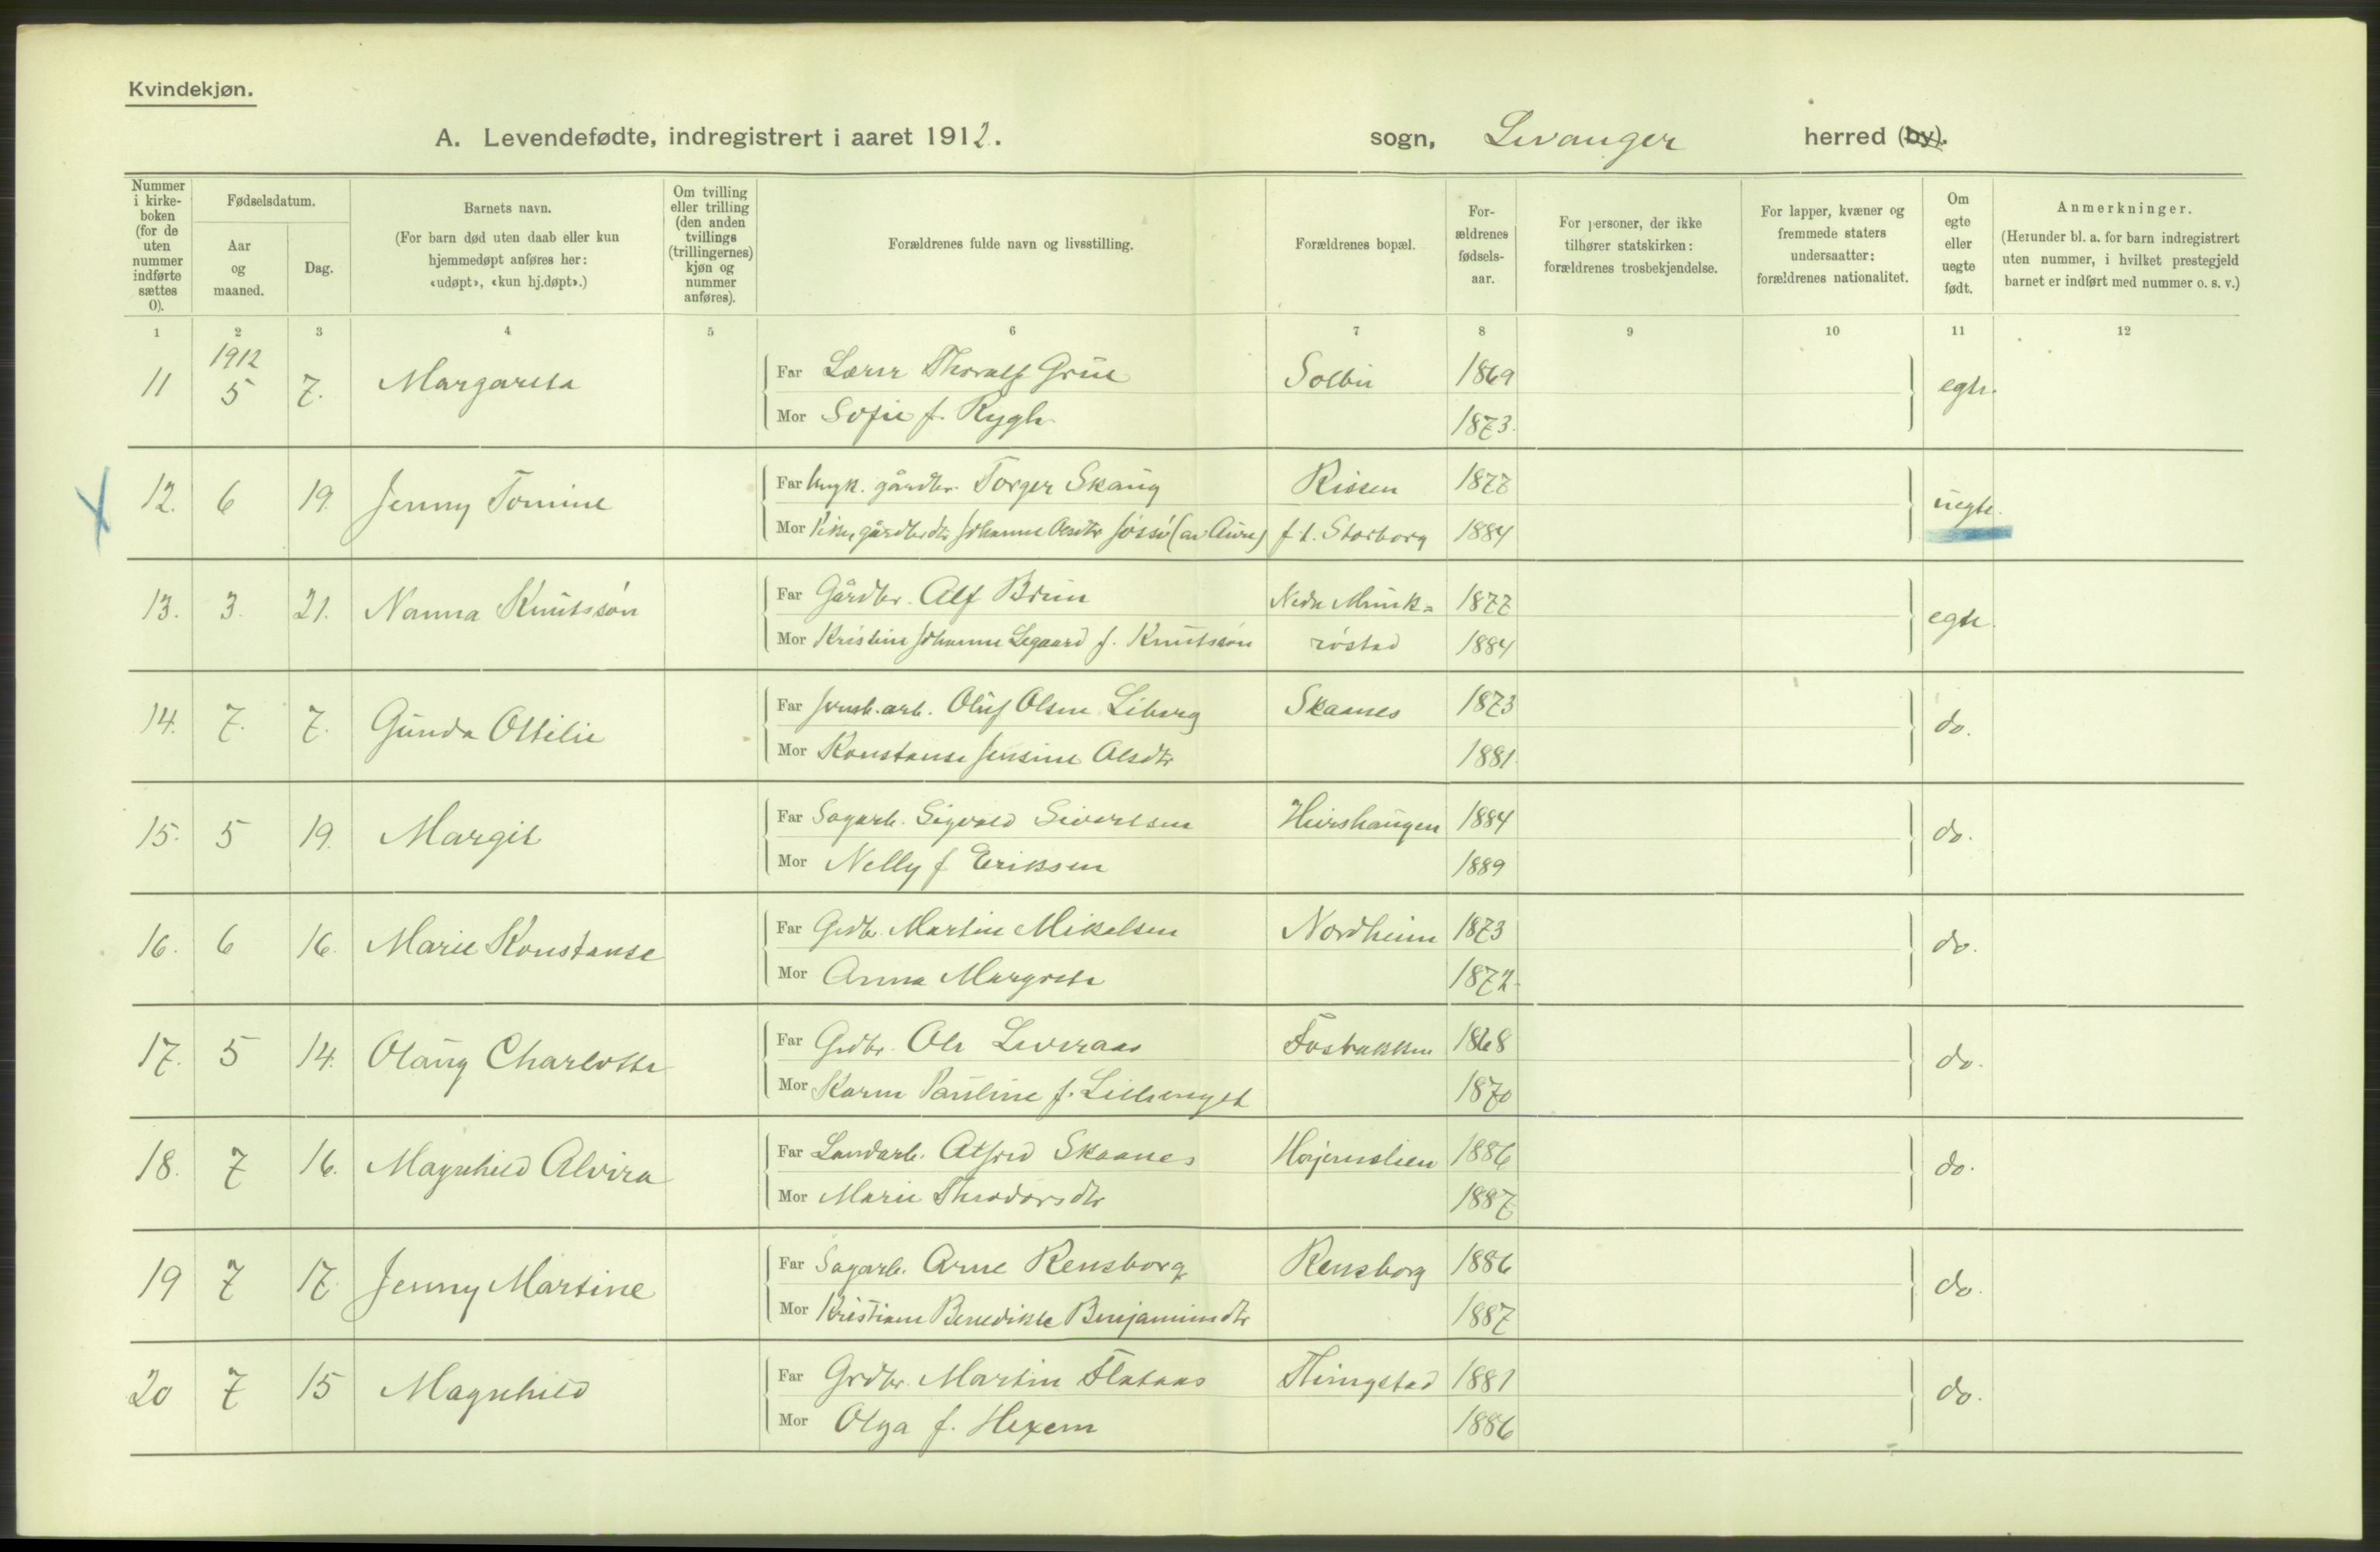 Kvindekjøn.
A. Levendefødte, indregistrert i aaret 1912. sogn, Levanger herred (by).
Nummer i kirke- boken (for de uten nummer indførte sættes 0).
Fødselsdatum.
Aar og maaned.
Dag.
Barnets navn.
(For barn død uten daab eller kun hjemmedøpt anføres her: «udøpt», «kun hj.døpt».)
Om tvilling eller trilling (den anden tvillings (trillingernes) kjøn og nummer anføres).
Forældrenes fulde navn og livsstilling.
Forældrenes bopæl.
For- ældrenes fødsels- aar.
For personer, der ikke tilhører statskirken: forældrenes trosbekjendelse.
For lapper, kvæner og fremmede staters undersaatter: forældrenes nationalitet.
Om egte eller uegte født.
Anmerkninger.
(Herunder bl. a. for barn indregistrert uten nummer, i hvilket prestegjeld barnet er indført med nummer o. s. v.)
1 2 3 4 5 6 7 8 9 10 11 12
1912
11 5 7. Margarete Far Lærer Thoralf Solbu 1869 egte.
Mor Sofie f. Rygh 1873.
12. 6 19. Jenny Tomine Far gårdbr. Torger Skaug Rissen 1877 uegte.
Mor Johanne (av Aure) f t. Storborg 1884
13. 3. 21. Nanna Knutssøn Far Gårdbr. Alf Brun Nedre Munk- 1877 egte.
Mor Kristine Johanne Legaard f. Knutssøn røstad 1884
14. 7. 7. Gunda Ottilie Far Oluf Olsen Liberg Skaanes 1873 do.
Mor Konstanse Jensine Olsdtr 1881.
15. 5 19. Margit Far Sagarb. Sigvald Sivertsen 1884 do.
Mor Nelly f Eriksen 1889
16. 6 16. Marie Konstanse Far Grdbr. Martin Mikalsen Nordheim 1873 do.
Mor Anna Margrete 1872.
17. 5 14. Olaug Charlotte Far Grdbr. Ole Leveraas Fosbakken 1868 do.
Mor Karen Pauline f. Lillenget 1870
18. 7 16. Magnhild Alvira Far Landarb. Alfred Skaanes 1886 do.
Mor Marie Theodorsdtr 1887
19 7 17. Jenny Martine Far Sagarb. Arne Rensborg Rensborg 1886 do.
Mor Kristiane Benedikte Benjaminsdtr 1887
20 7 15 Magnhild Far Grdbr. Martin Flataas Thingstad 1881 do.
Mor Olga f. Hexem 1886